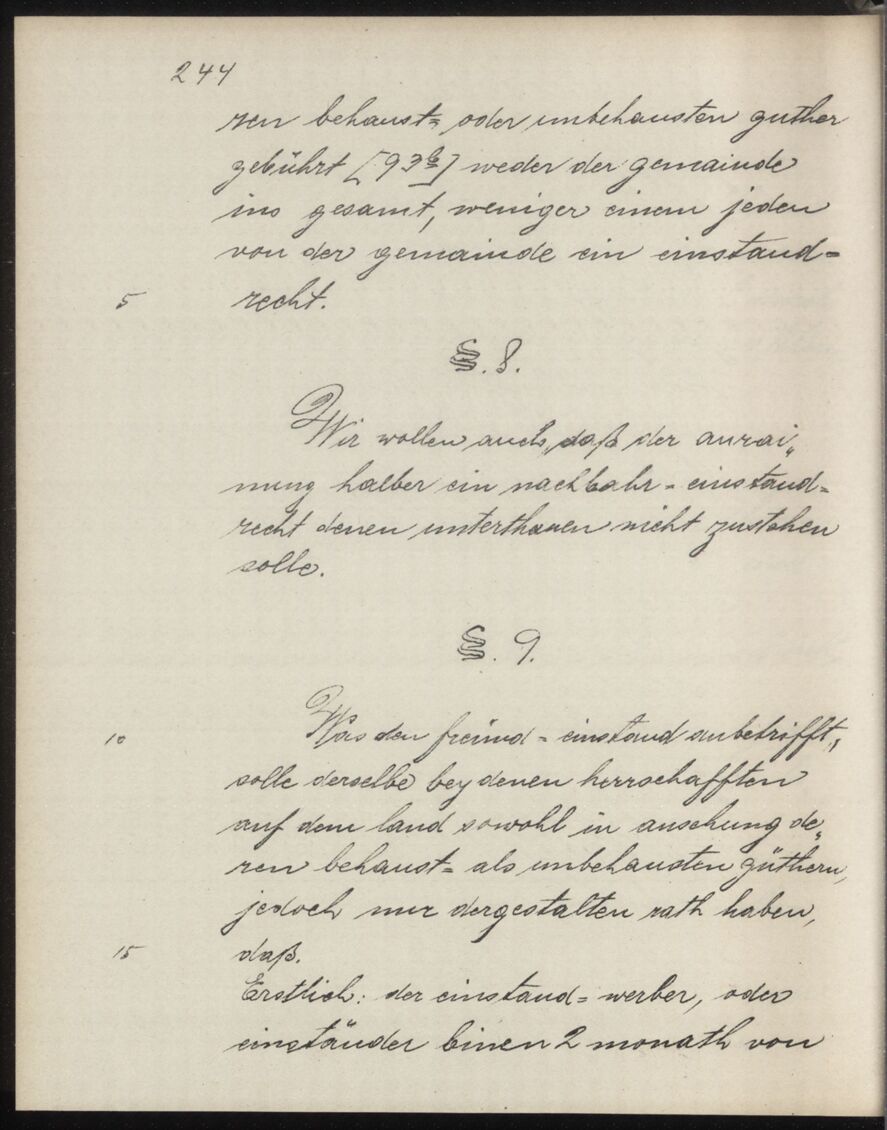 244
ren behaust= oder unbehausten guther
gebührt [93b] weder der gemainde
ins gesamt, weniger einem jeden
von der gemainde ein einstand=
5 recht.
§. 8.
Wir wollen auch, daß der anrai„
nung halber ein nachbahr=einstand=
recht denen unterthanen nicht zustehen
solle.
§. 9.
10 Was den freünd=einstand anbetrifft,
solle derselbe bey denen herrschafften
auf dem land sowohl in ansehung de„
ren behaust= als unbehausten güthern,
jedoch nur dergestalten rath haben,
15 daß.
Erstlich: der einstand=werber, oder
einständer binen 2 monath von